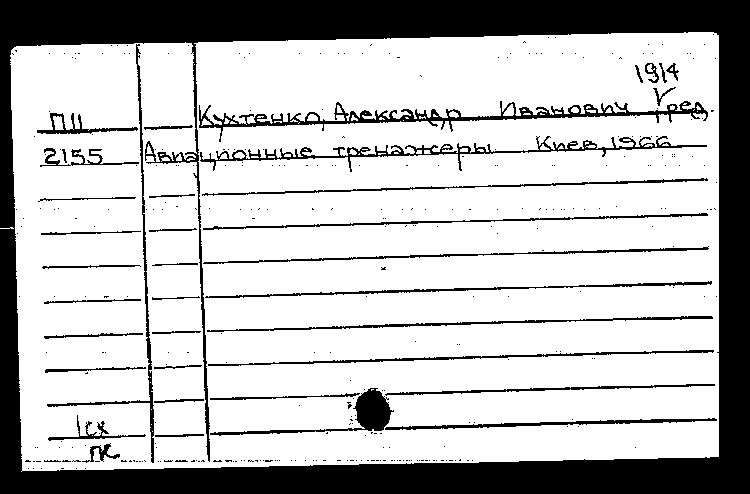 1914
П11 Кухтенко, Александр Иванович ред.
2155 Авиационные тренажеры Киев, 1966
1сх
пк